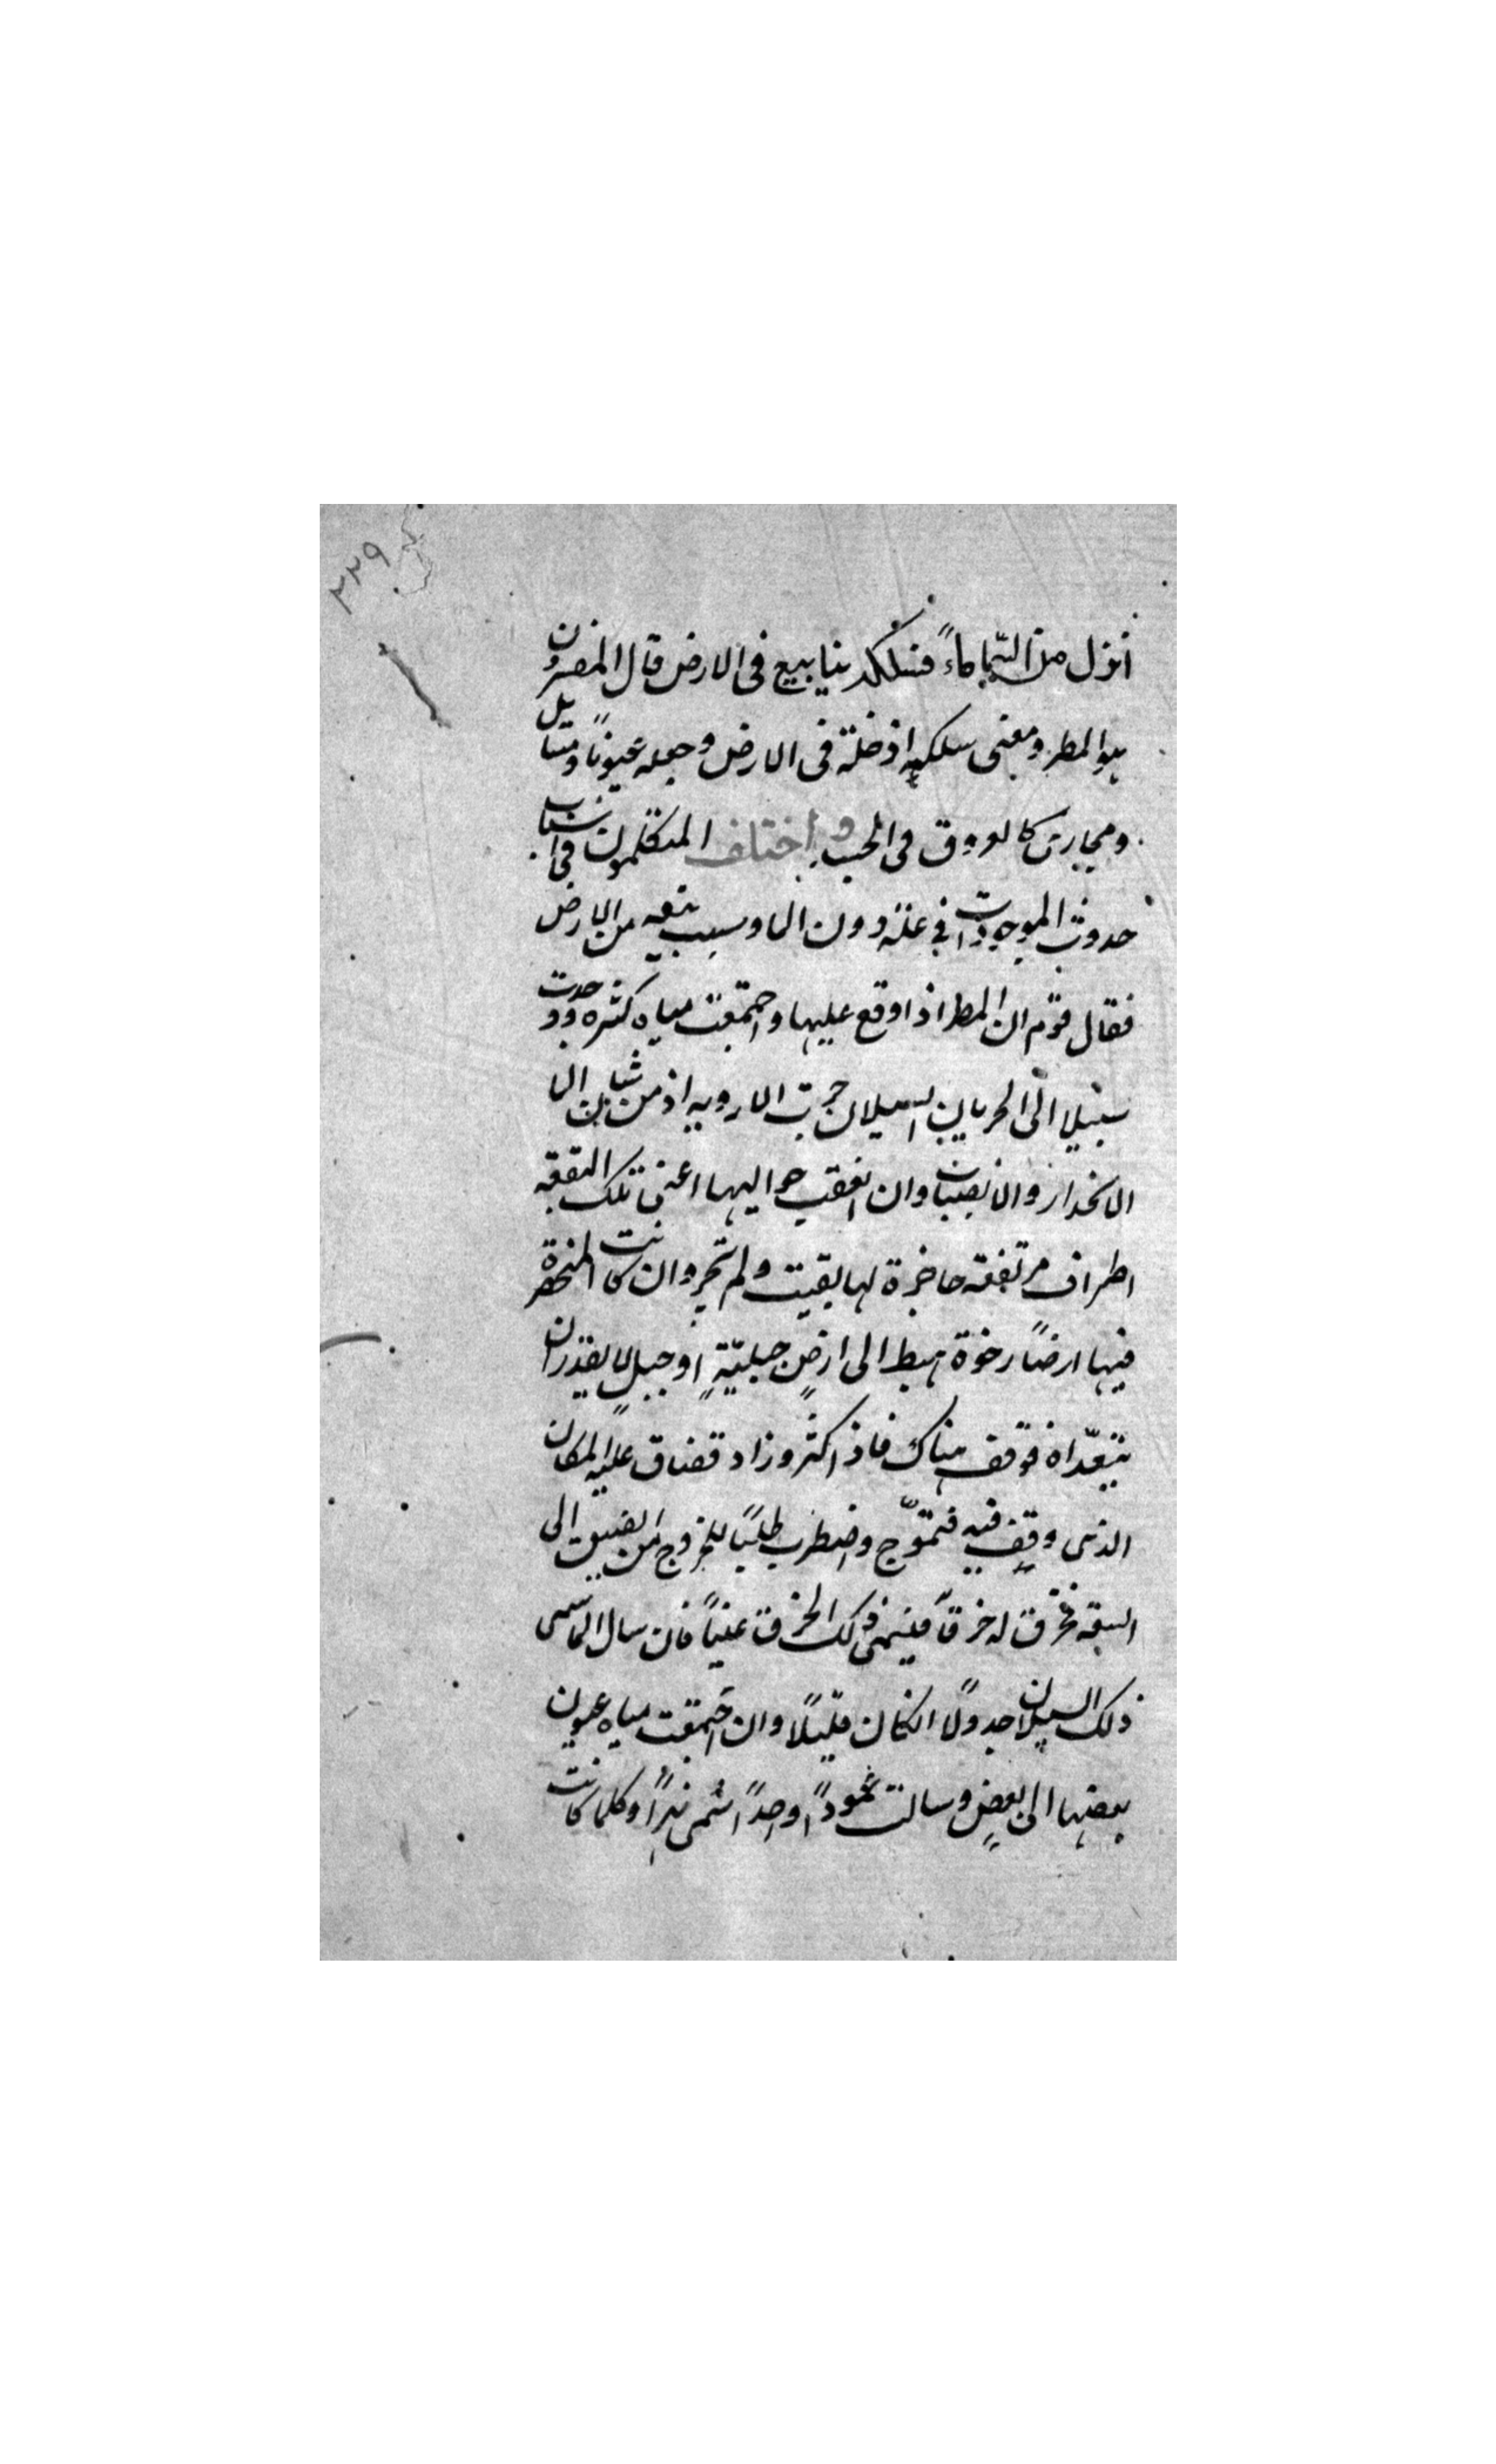 ٣٣٩
أنزل من السّماء ماءً فسلكه ينابيع فى الارض قال المفسرون
هو المطر ومعنى سلكه ادخله فى الارض وجعله عيونًا ومسايل
ومجارى كالعروق فى الجسد واختلف المتكلمون فى اسباب
حدوث الموجودات فى علة دون الما وسبب نبعه من الارض
فقال قوم ان المطر اذا وقع عليها واجتمعت مياه كثيره ووجدت
سبيلا الى الجريان والسيلان جرت الاوديه اذ من شان الما
الانحدار والانصباب وان اتفقت حواليها اعنى تلك البقعه
اطراف مرتفعه حاجزة لها بقيت ولم تجر وان كانت المنحصرة
فيها ارضًا رخوة تهبط الى ارضٍ جبليّةٍ او جبلٍ لا يقدر ان
يتعدّاه فوقف هناك فاذا كثر وزاد فضاق عليه المكان
الذى وقف فيه فتموّج واضطرب طلبًا للخروج من الضيق الى
السعه فخرق له خرقًا فيسمى ذلك الخرق عينًا فان سال الما سمى
ذلك السيلان جدولًا ان كان قليلًا وان اجتمعت مياه عيون
بعضها الى بعضٍ وسالت عمودًا واحدًا سُمى نهرًا وكلما كانت